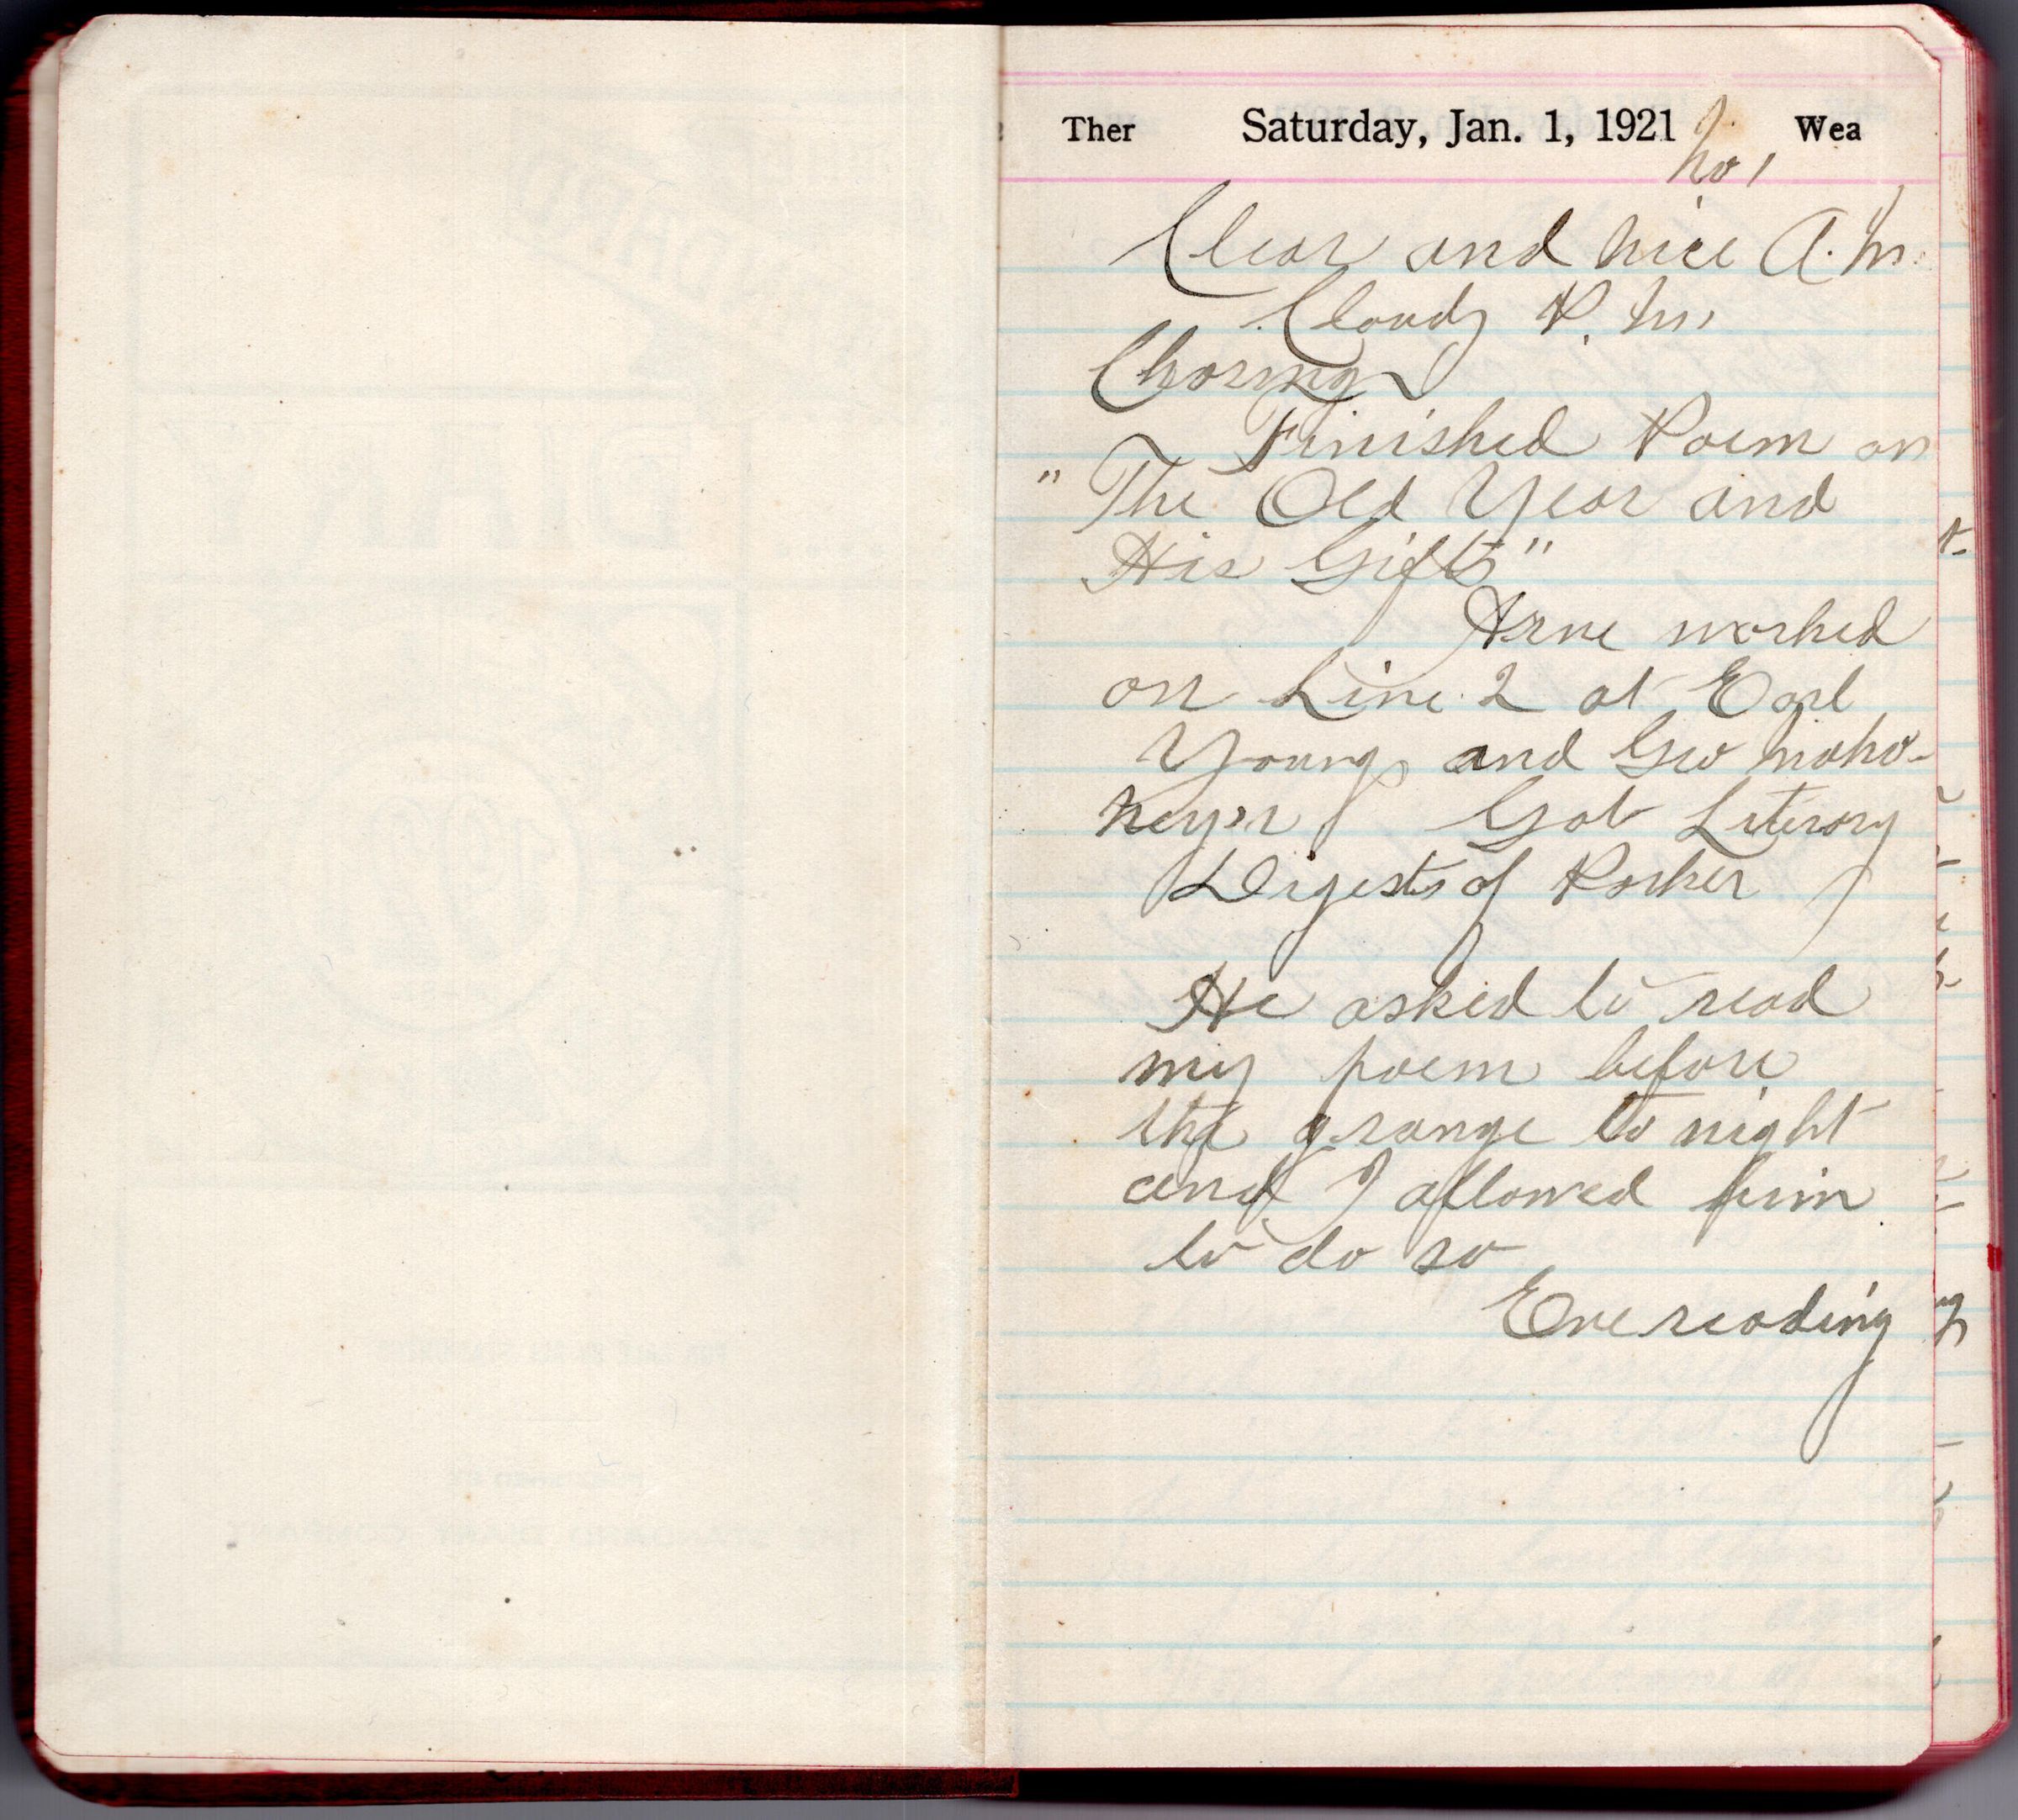 Ther Saturday, Jan. 1, 1921 Wea
No 1
Clear and nice A.M.
Cloudy P.M.
Choring
Finished Poem on
"The Old Year and
His Gifts"
worked
on Line 2 at Earl
Youngs and Geo Maho-
neys Got Literary
Digests of Parker
He asked to read
my poem before
the grange to night
and I allowed him
to do so
Eve reading